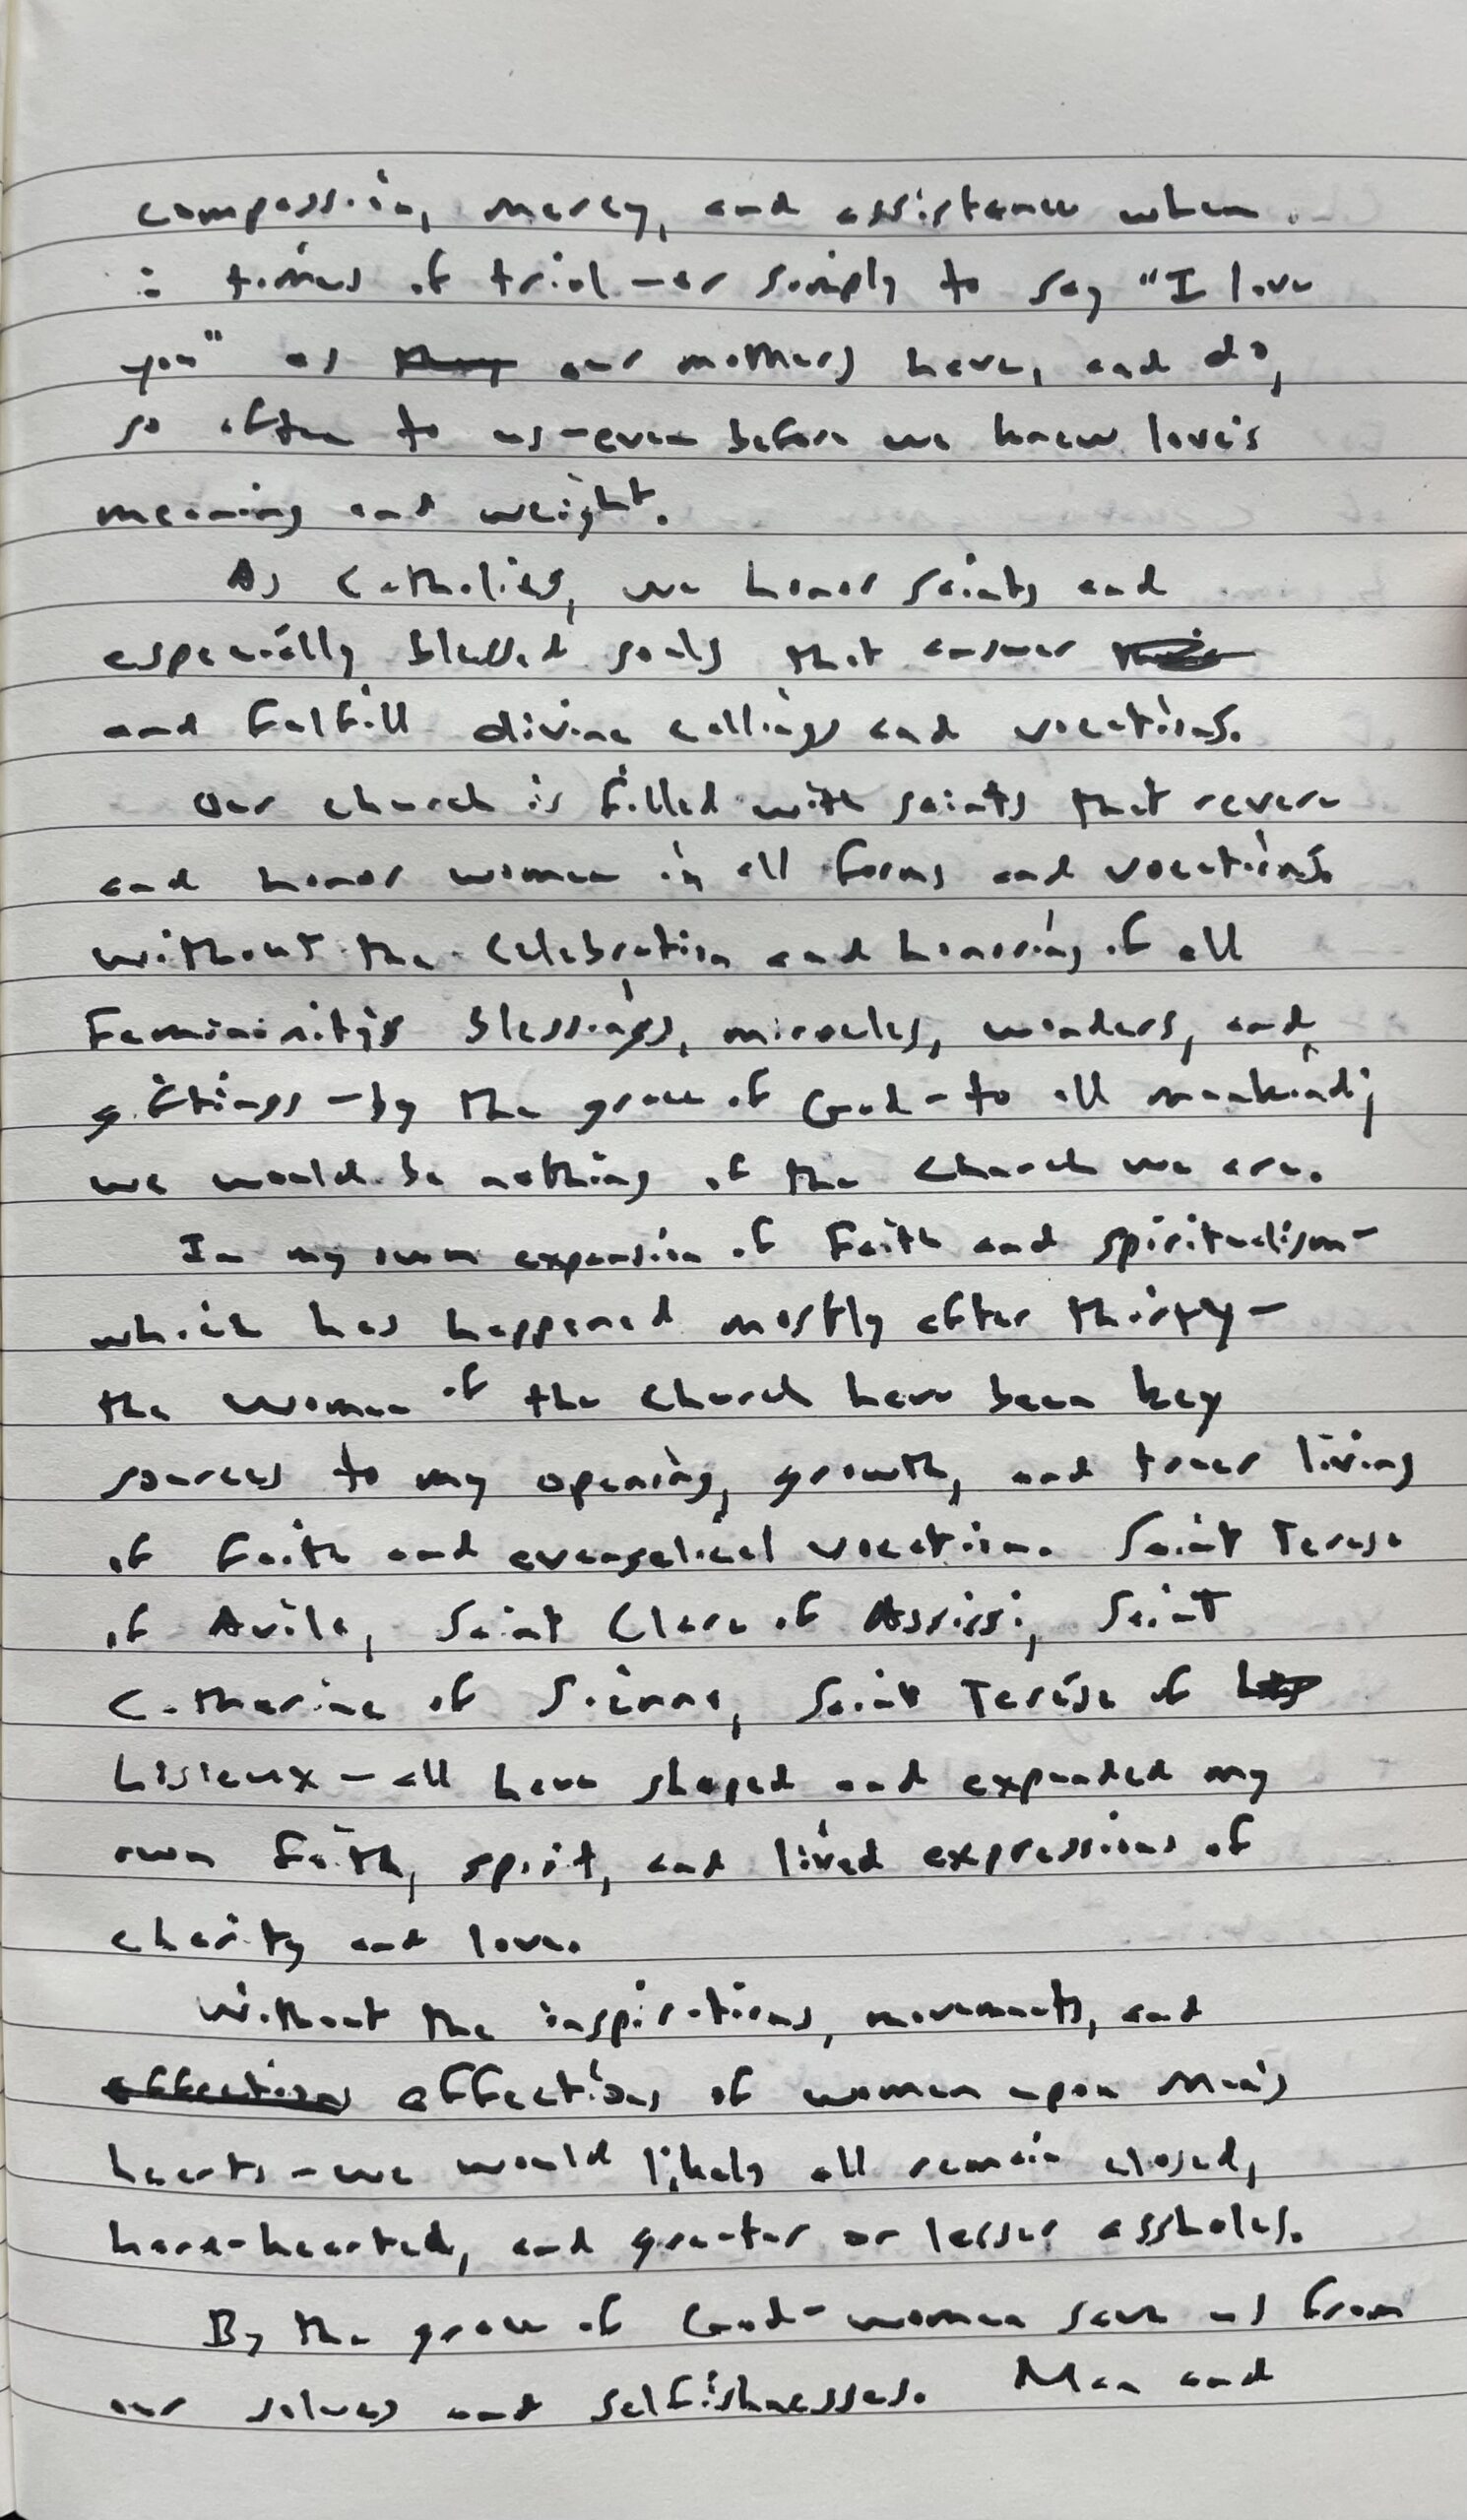 compassion, mercy, and assistance when
: times of trial - or simply to say "I love
you" as our mothers have, and do,
so often to us - even before we knew love's
meaning and weight.
As Catholics, we honor saints and
especially blessed souls that answer
and fulfill divine callings and vocations.
Our church is filled with saints that revere
and honor women in all forms and vocations.
Without the celebration and honoring of all
Femininity's blessings, miracles, wonders, and
giftings - by the grace of God - to all mankind;
we would be nothing of the church we are.
In my own expansion of Faith and spiritualism -
which has happened mostly after thirty -
the women of the church have been key
sources to my opening, growth, and truer living
of faith and evangelical vocation. Saint Teresa
of Avila, Saint Clare of Assissi, Saint
Catherine of Sienna, Saint Terése of
Lisieux - all have shaped and expanded my
own faith, spirit, and lived expressions of
charity and love.
Without the inspirations, movements, and
affections affections of women upon Men's
hearts - we would likely all remain closed,
hard-hearted, and greater or lesser assholes.
By the grace of God - women save us from
our selves and selfishnesses. Men and